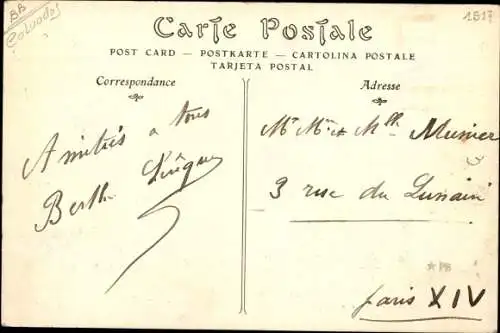 BB
Calvados
1517
Carte Postale
POST CARD — POSTKARTE — CARTOLINA POSTALE
TARJETA POSTAL
Correspondance
Adresse
Amitiés a tous
Berthe Levêque
Mr Me et Mlle Munier
3 rue du Lunain
Paris XIV